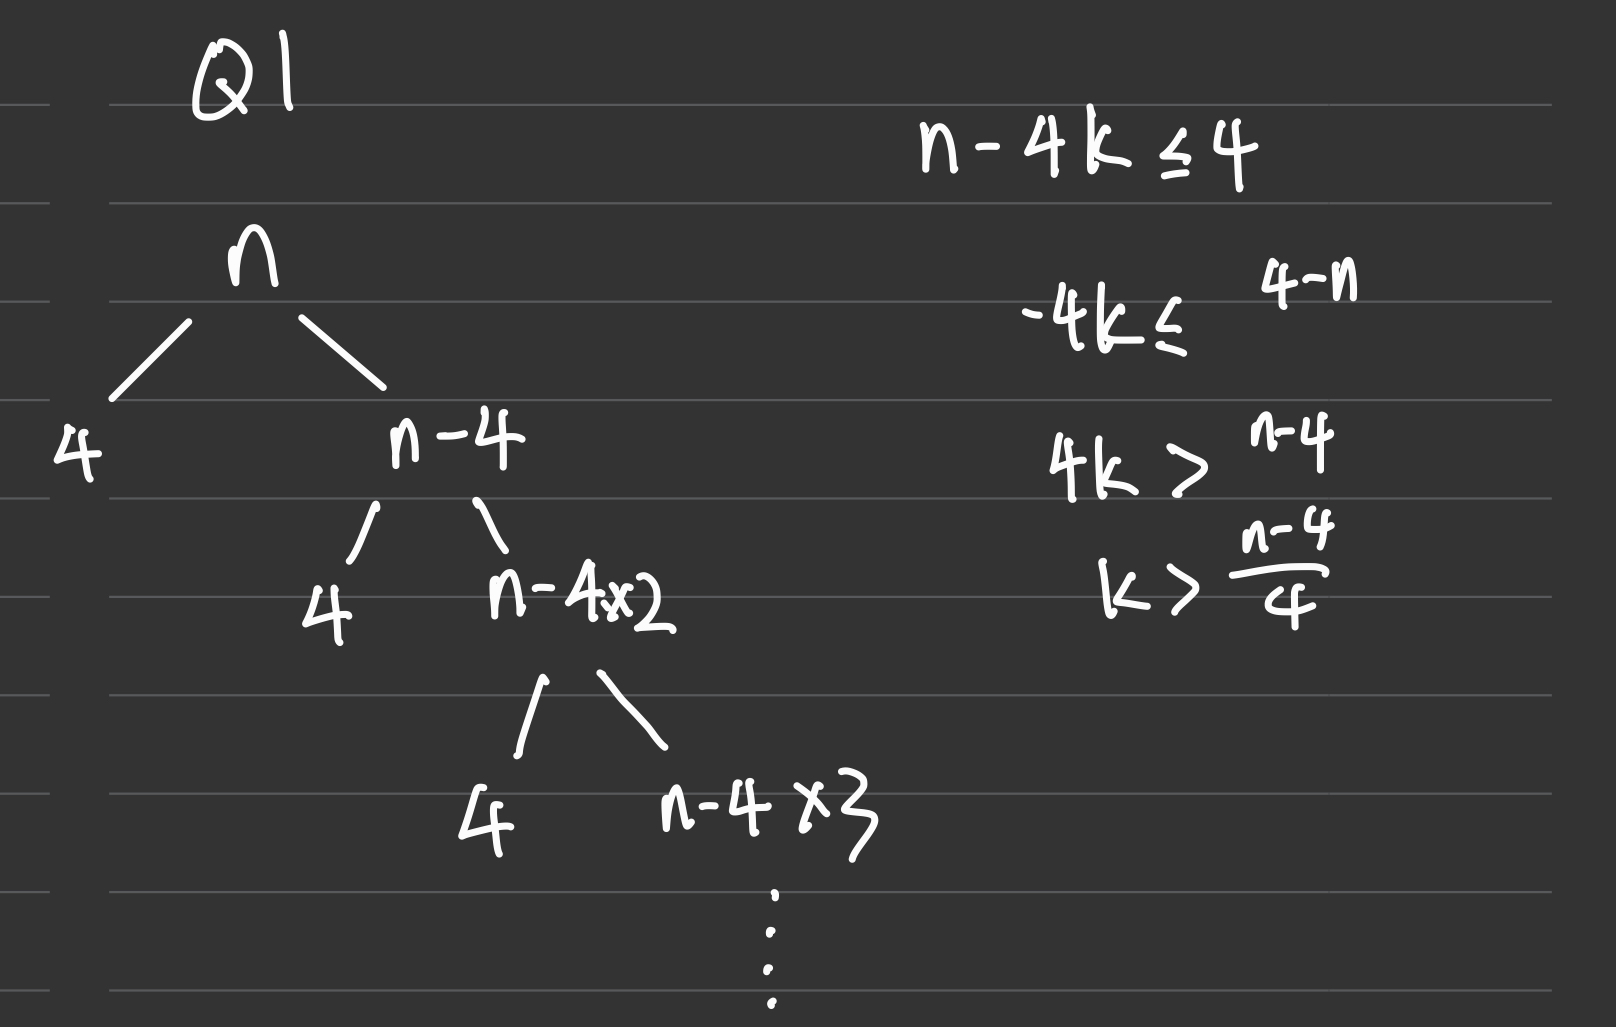 Q1
n
4 n-4
4 n-4x2
4 n-4x3
n-4k≤4
-4k≤ 4-n
4k> n-4
k> n-4
4